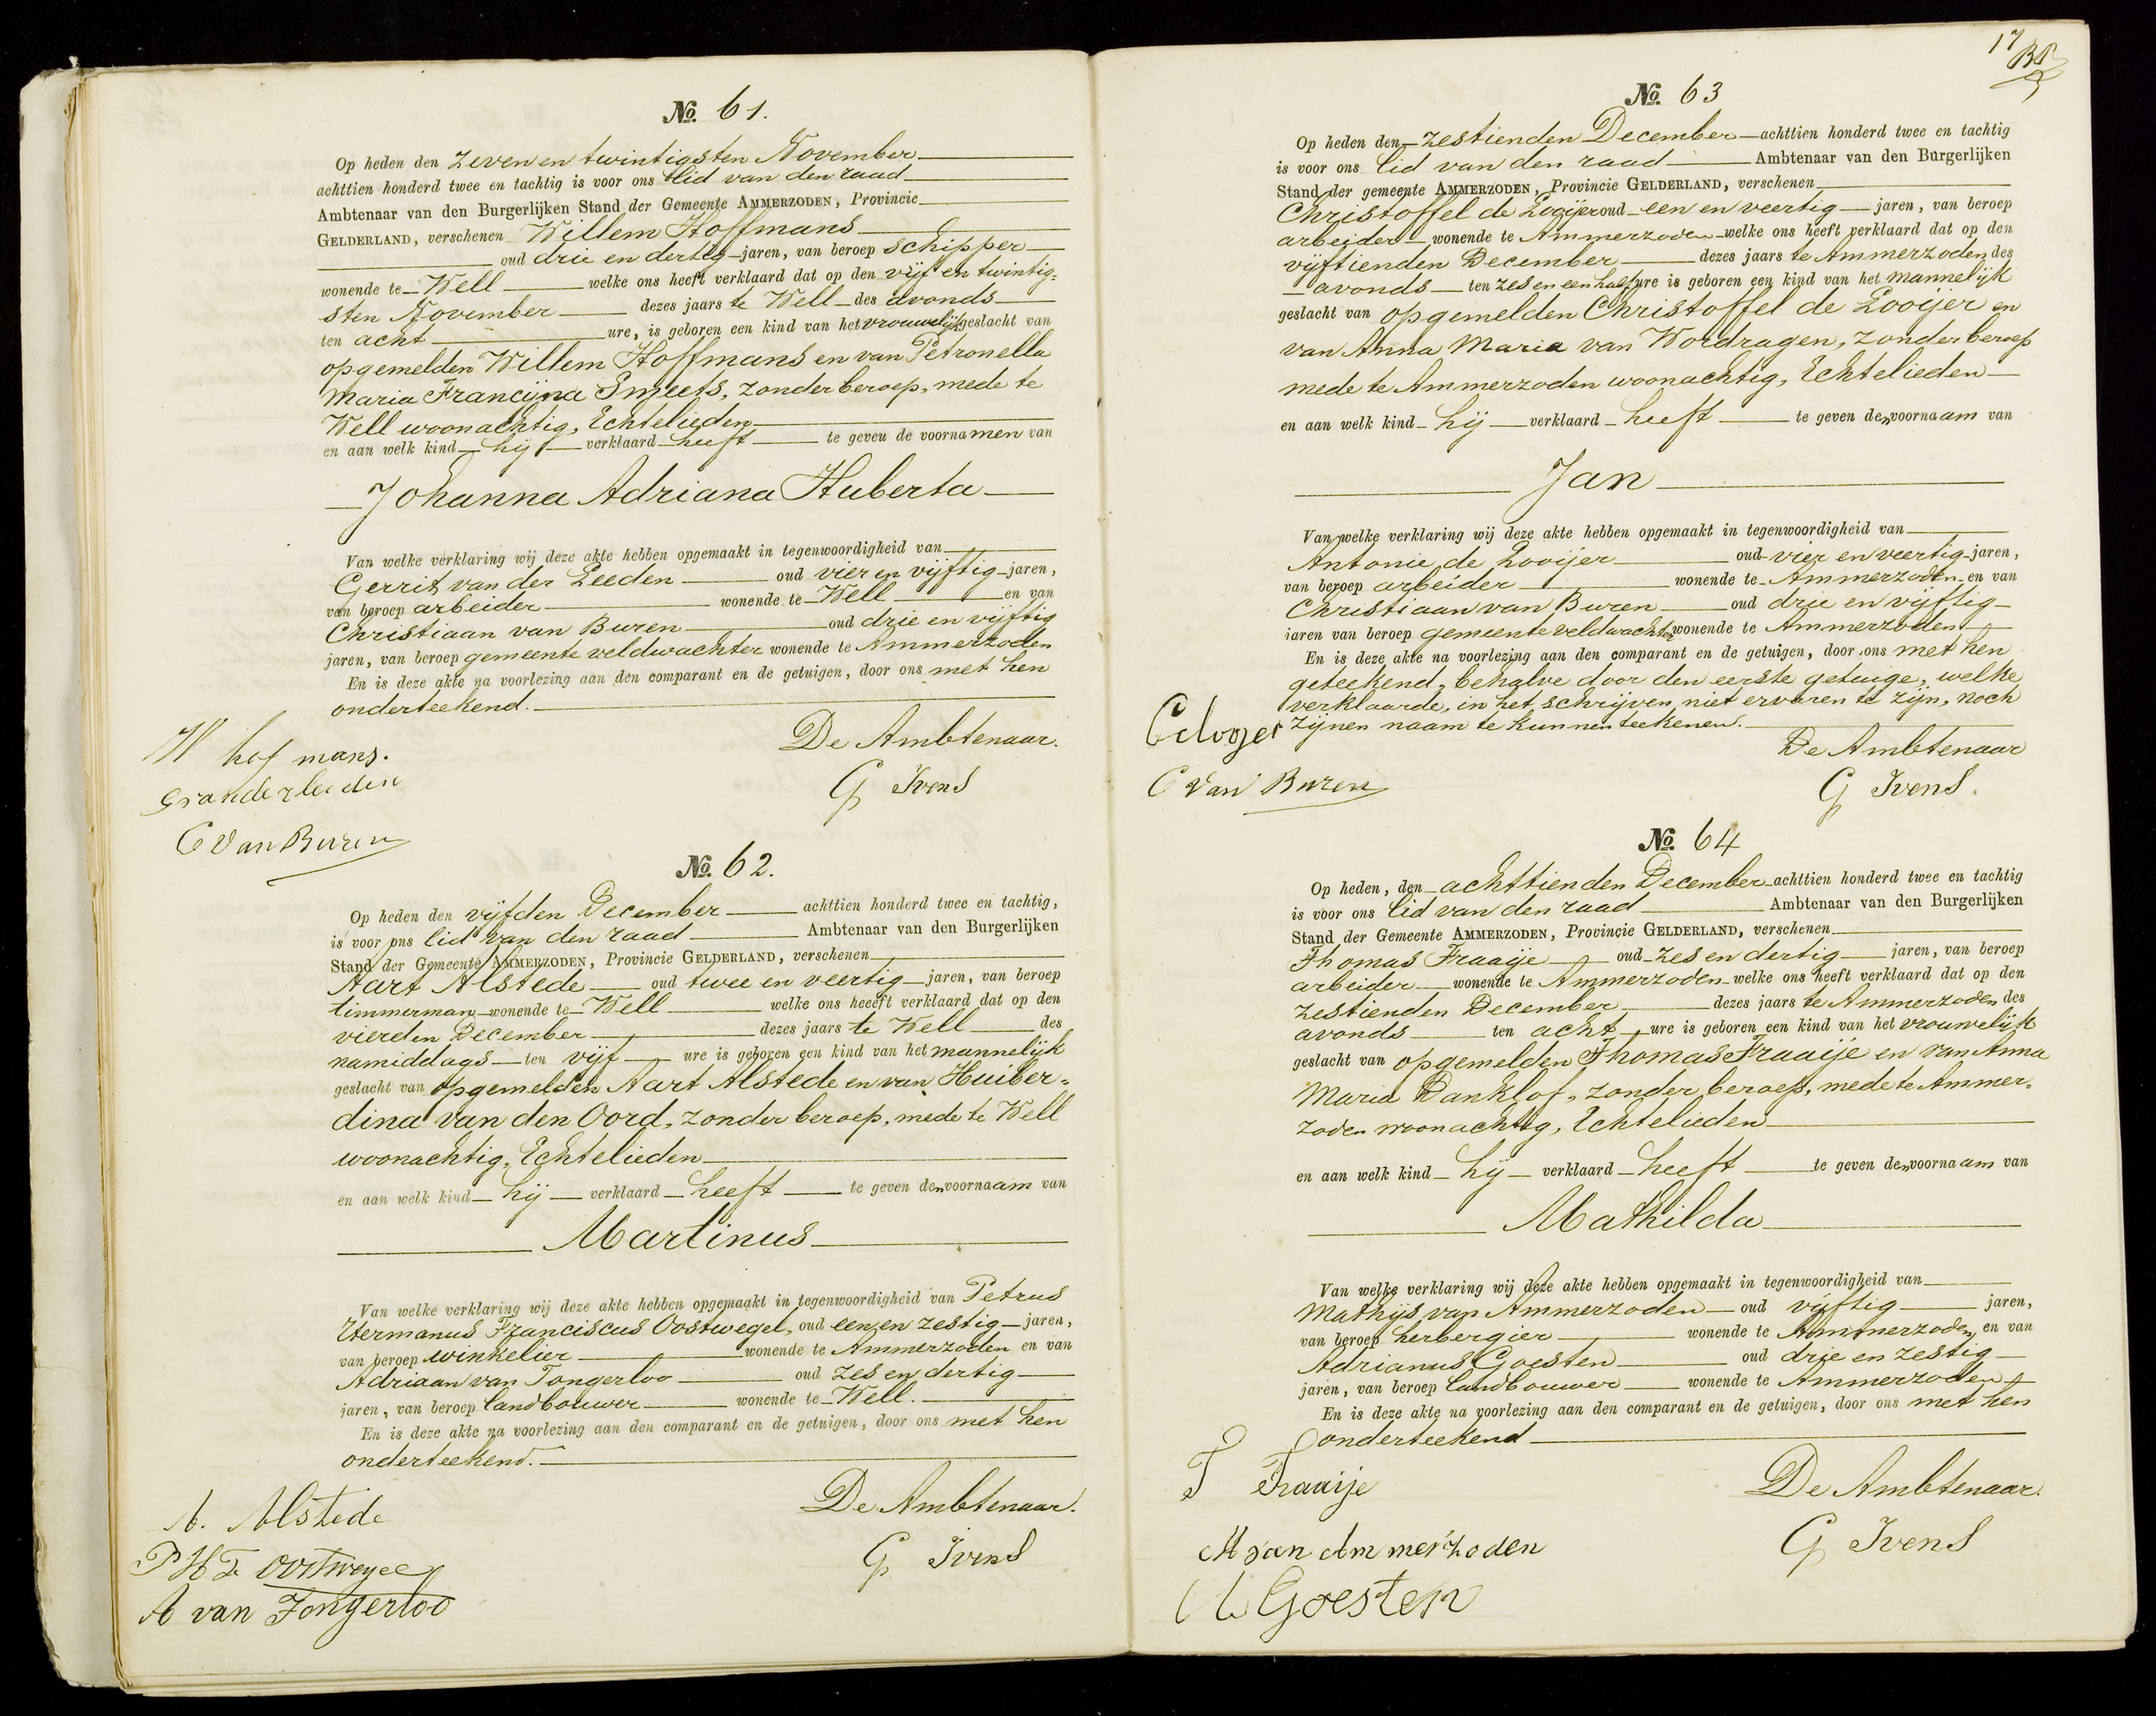 No. 61.
Op heden den zeven en twintigsten November
achttien honderd twee en tachtig is voor ons lid van den raad
Ambtenaar van den Burgerlijken Stand der Gemeente AMMERZODEN, Provincie
GELDERLAND, verschenen Willem Hoffmans
oud drie en dertig jaren, van beroep schipper
wonende te Well welke ons heeft verklaard dat op den vijf en twintig=
sten November dezes jaars te Well des avonds
ten acht ure, is geboren een kind van het vrouwelijk geslacht van
opgemelden Willem Hoffmans en van Petronella
Maria Francijna Smeets, zonder beroep, mede te
Well woonachtig, Echtelieden
en aan welk kind hij verklaard heeft te geven de voornamen van
Johanna Adriana Huberta
Van welke verklaring wij deze akte hebben opgemaakt in tegenwoordigheid van
Gerrit van der Leeden oud vier en vijftig jaren,
van beroep arbeider wonende te Well en van
Christiaan van Buren oud drie en vijftig
jaren, van beroep gemeente veldwachter wonende te Ammerzoden
En is deze akte na voorlezing aan den comparant en de getuigen, door ons met hen
onderteekend.
De Ambtenaar.
W hofmans.
G Ivens
Gvanderleeden
C Van Buren
No. 62.
Op heden den vijfden December achttien honderd twee en tachtig,
is voor ons lid van den raad Ambtenaar van den Burgerlijken
Stand der Gemeente AMMERZODEN, Provincie GELDERLAND, verschenen
Aart Alstede oud twee en veertig jaren, van beroep
timmerman wonende te Well welke ons heeeft verklaard dat op den
vierden December dezes jaars te Well des
namiddags ten vijf ure is geboren een kind van het mannelijk
geslacht van opgemelden Aart Alstede en van Huiber=
dina van den Oord, zonder beroep, mede te Well
woonachtig, Echtelieden
en aan welk kind hij verklaard heeft te geven den voornaam van
Martinus
Van welke verklaring wij deze akte hebben opgemaakt in tegenwoordigheid van Petrus
Hermanus Franciscus Oostwegel, oud een en zestig jaren,
van beroep winkelier wonende te Ammerzoden en van
Adriaan van Tongerloo oud zes en dertig
jaren, van beroep landbouwer wonende te Well.
En is deze akte na voorlezing aan den comparant en de getuigen, door ons met hen
onderteekend.
De Ambtenaar.
A. Alstede
G Ivens
P H F Oostwegel
A van Tongerloo
17
No. 63
Op heden den zestienden December achttien honderd twee en tachtig
is voor ons lid van den raad Ambtenaar van den Burgerlijken
Stand der gemeente AMMERZODEN, Provincie GELDERLAND, verschenen
Christoffel de Looijer oud een en veertig jaren, van beroep
arbeider wonende te Ammerzoden welke ons heeft verklaard dat op den
vijftienden December dezes jaars te Ammerzoden des
avonds ten zes en een half ure is geboren een kind van het mannelijk
geslacht van opgemelden Christoffel de Looijer en
van Anna Maria van Wordragen, zonder beroep
mede te Ammerzoden woonachtig, Echtelieden
en aan welk kind hij verklaard heeft te geven den voornaam van
Jan
Van welke verklaring wij deze akte hebben opgemaakt in tegenwoordigheid van
Antonie de Looijer oud vier en veertig jaren,
van beroep arbeider wonende te Ammerzoden en van
Christiaan van Buren oud drie en vijftig
jaren van beroep gemeente veldwachter wonende te Ammerzoden
En is deze akte na voorlezing aan den comparant en de getuigen, door ons met hen
geteekend, behalve door den eerste getuige, welke
verklaarde, in het schrijven niet ervaren te zijn, noch
zijnen naam te kunnen teekenen.
De Ambtenaar
C van Buren
G Ivens.
No. 64
Op heden, den achttienden December achttien honderd twee en tachtig
is voor ons lid van den raad Ambtenaar van den Burgerlijken
Stand der Gemeente AMMERZODEN, Provincie GELDERLAND, verschenen
Thomas Fraaije oud zes en dertig jaren, van beroep
arbeider wonende te Ammerzoden welke ons heeft verklaard dat op den
zestienden December dezes jaars te Ammerzoden des
avonds ten acht ure is geboren een kind van het vrouwelijk
geslacht van opgemelden Thomas Fraaije en van Anna
Maria Danklof, zonder beroep, mede te Ammer=
zoden woonachtig, Echtelieden
en aan welk kind hij verklaard heeft te geven den voornaam van
Mathilda
Van welke verklaring wij deze akte hebben opgemaakt in tegenwoordigheid van
Mathijs van Ammerzoden oud vijftig jaren,
van beroep herbergier wonende te Ammerzoden en van
Adrianus Goesten oud drie en zestig
jaren, van beroep landbouwer wonende te Ammerzoden
En is deze akte na voorlezing aan den comparant en de getuigen, door ons met hen
onderteekend
T Fraaije
De Ambtenaar.
M van Ammerzoden
G Ivens
A Goesten